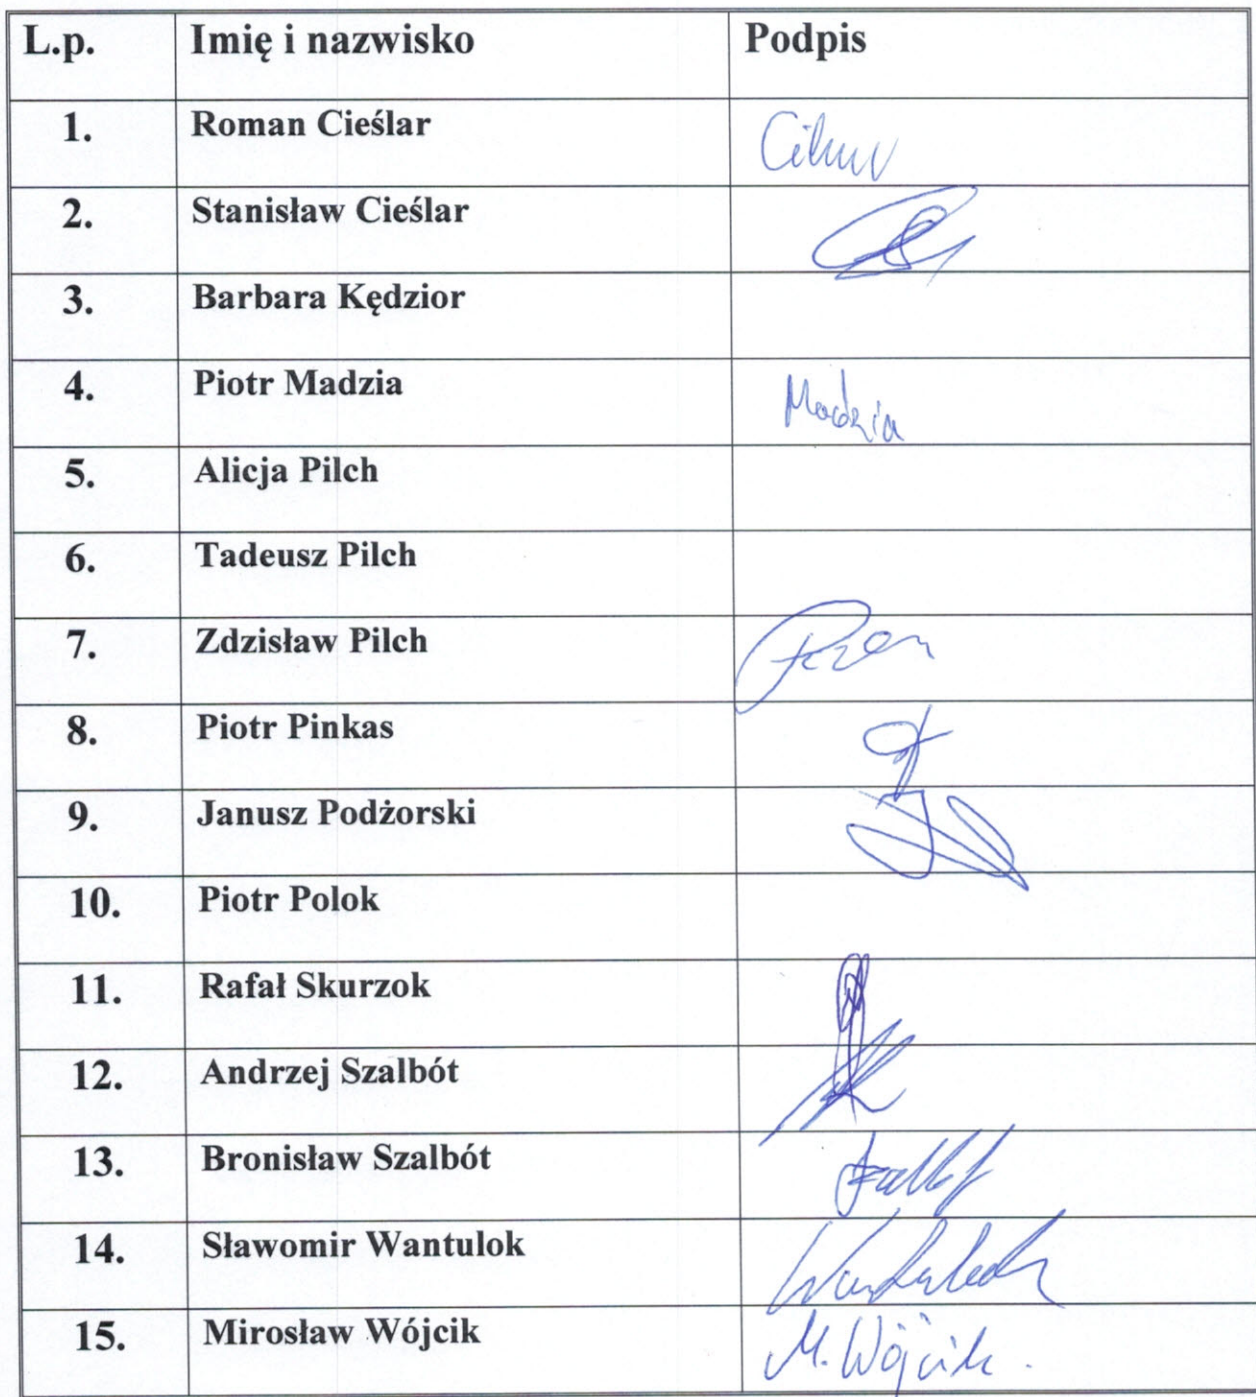 L.p. Imię i nazwisko Podpis
1. Roman Cieślar
2. Stanisław Cieślar
3. Barbara Kędzior
4. Piotr Madzia Madzia
5. Alicja Pilch
6. Tadeusz Pilch
7. Zdzisław Pilch
8. Piotr Pinkas
9. Janusz Podżorski
10. Piotr Polok
11. Rafał Skurzok
12. Andrzej Szalbót
13. Bronisław Szalbót
14. Sławomir Wantulok
15. Mirosław Wójcik M. Wójcik.